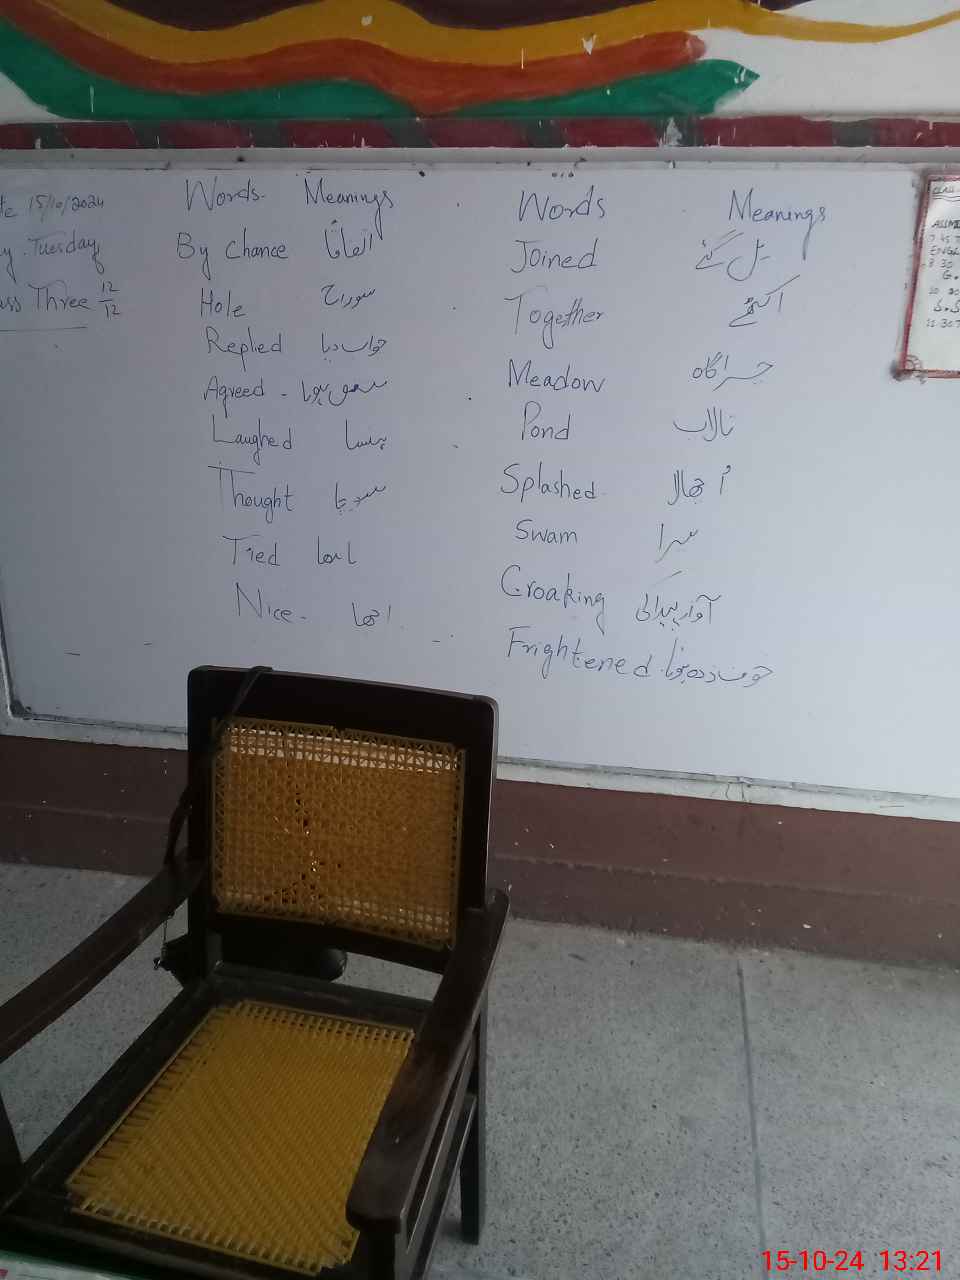 15/10/2024
Tuesday
Three 12/12
Words. Meanings
By Chance اتفاقاً
Hole سوراخ
Replied جواب دیا
Agreed - متفق ہونا
Laughed ہنسا
Thought سوچا
Tried
Nice. اچھا
Words Meanings
Joined مل گئے
Together اکٹھے
Meadow چراگاہ
Pond تالاب
Splashed. اُچھالا
Swam تیرا
Croaking آواز پیدا کی
Frightened. خوف زدہ ہونا
15-10-24 13:21